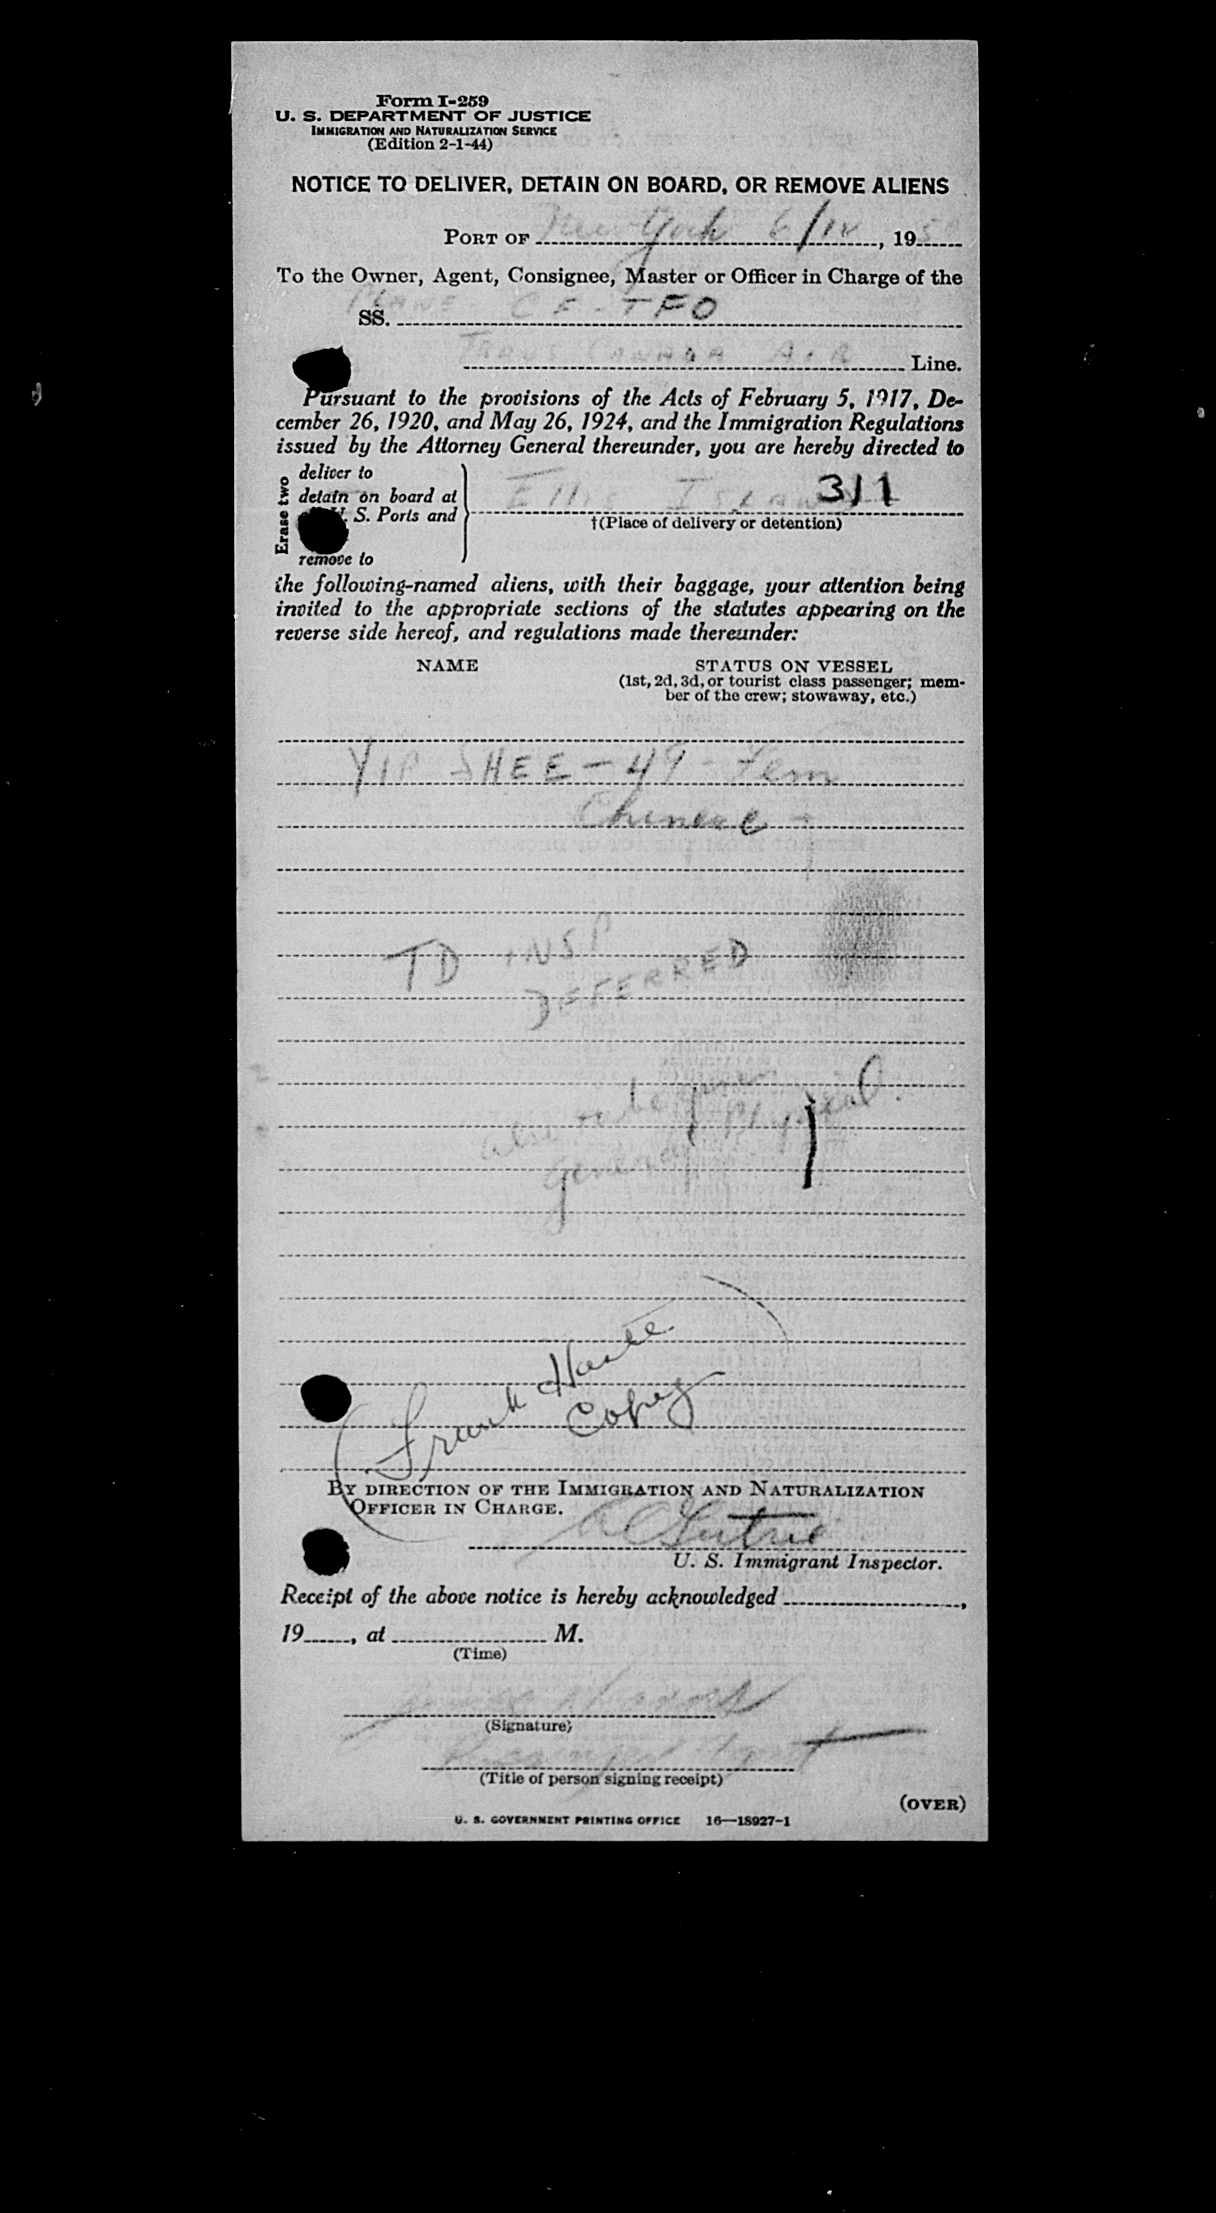 Form I-259
U. S. DEPARTMENT OF JUSTICE
IMMIGRATION AND NATURALIZATION SERVICE
(Edition 2-1-44)
NOTICE TO DELIVER, DETAIN ON BOARD, OR REMOVE ALIENS
PORT OF New York 6/18, 1950
To the Owner, Agent, Consignee, Master or Officer in Charge of the
SS. PLANE CF-TFO
TRANS CANADA AIR Line.
Pursuant to the provisions of the Acts of February 5, 1917, De-
cember 26, 1920, and May 26, 1924, and the Immigration Regulations
issued by the Attorney General thereunder, you are hereby directed to
Erase two
deliver to
detain on board at
S. Ports and
remove to
Ellis Island 311
†(Place of delivery or detention)
the following-named aliens, with their baggage, your attention being
invited to the appropriate sections of the statutes appearing on the
reverse side hereof, and regulations made thereunder:
NAME STATUS ON VESSEL
(1st, 2d, 3d, or tourist class passenger; mem-
ber of the crew; stowaway, etc.)
YIP SHEE - 49 - Fem
Chinese
TD INSP
DEFERRED
also to be given
general Physical.
Frank
Copy
BY DIRECTION OF THE IMMIGRATION AND NATURALIZATION
OFFICER IN CHARGE.
U. S. Immigrant Inspector.
Receipt of the above notice is hereby acknowledged ,
19 , at M.
(Time)
(Signature)
Passenger Agent
(Title of person signing receipt)
(OVER)
U. S. GOVERNMENT PRINTING OFFICE 16—18927-1